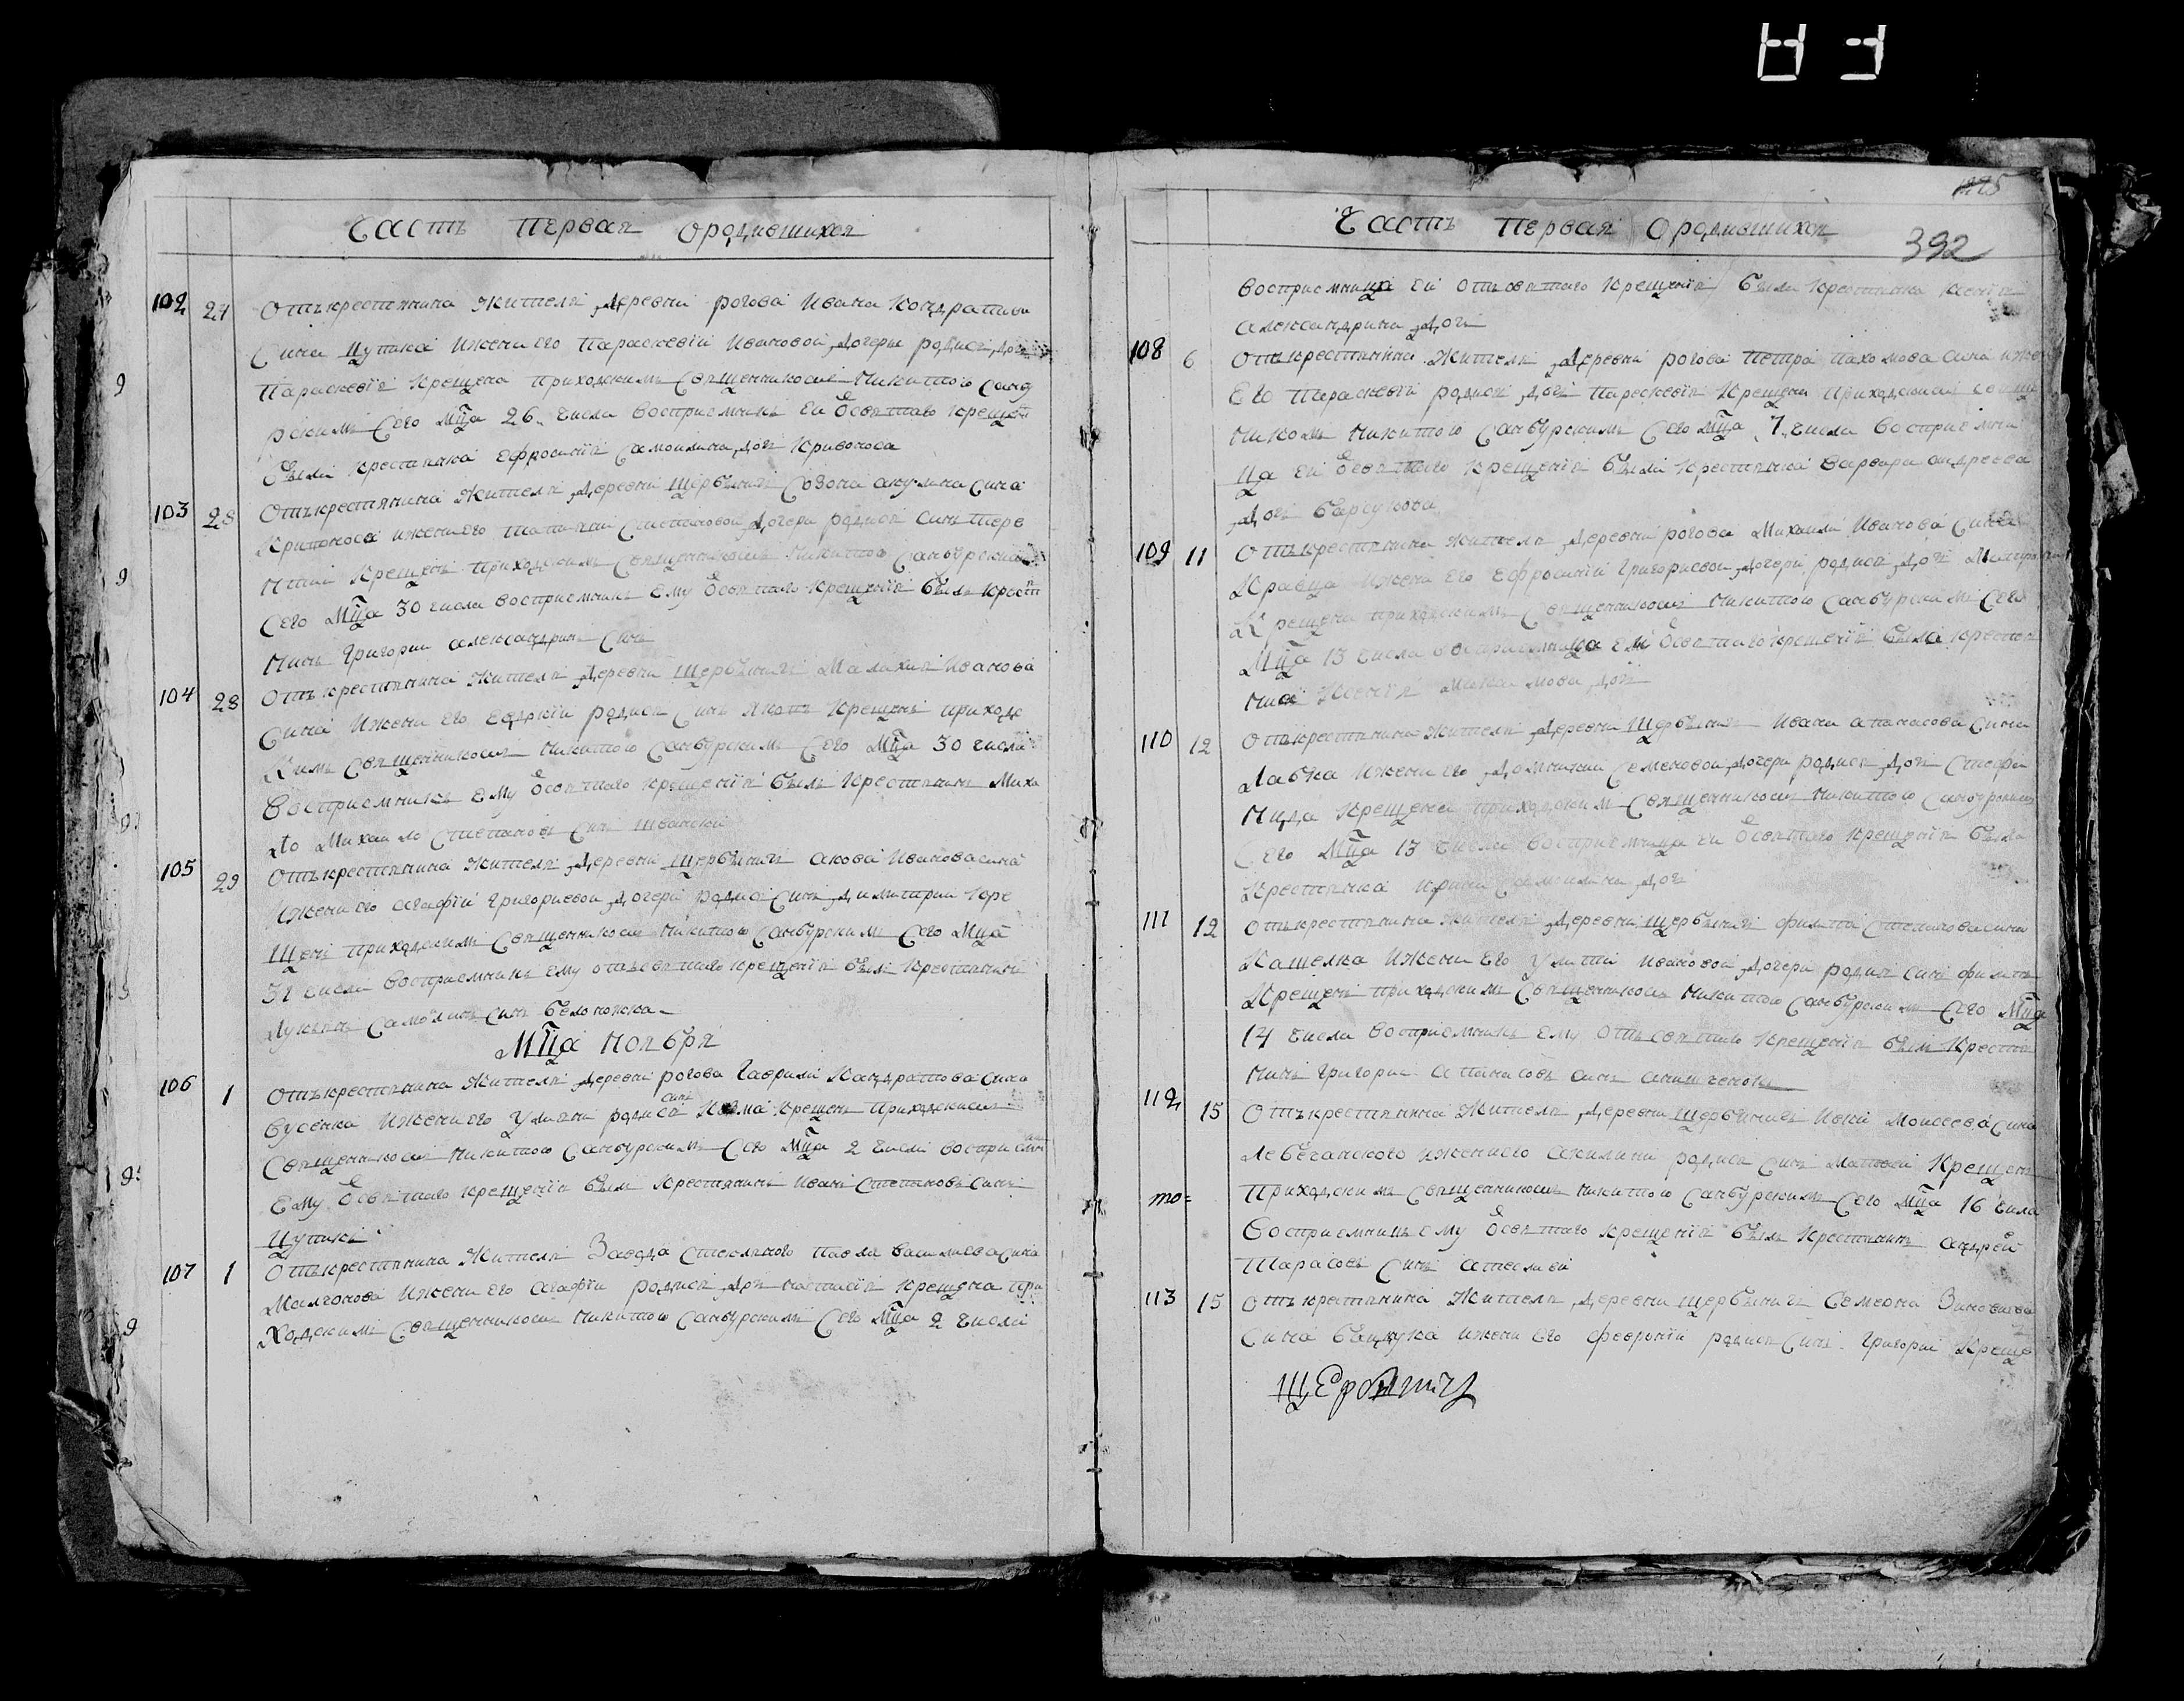 Часть первая ородившихся
102 27 Отъ крестянина жителя деревни рогова Ивана Кондратива
Сина Цупика ижени его Параскевіи Ивановой дочери родися дочь
Параскевія крещена приходским священникосм Никитою Санбу
рским Сего Мца 26 числа восприемникъ ей ѿ святаго крещен
были крестянка Ефросинія Самоилина дочь Кривоноса
103 28 Отъ крестянина жителя деревни Щербинич Созона акулина сина
Кривоноса ижени его Татияни Степановой дочери родися синъ Тере
нтій крещенъ приходским священникосм Никитою Санбурским
Сего Мца 30 числа восприемникъ ему ѿ святаго крещенія билъ крестя
нинъ Григории александринъ Синъ
104 28 Отъ крестянина жителя деревни Щербинич Малахия Иванова
Сина ижени его Евдокіи родися Синъ Яковъ крещенъ приходс
Кимъ Священникосм Никитою Санбурским Сего Мца 30 числа
Восприемникъ ему ѿ святаго крещенія билъ крестянинъ Миха
ло Михаило Степановъ Синъ
105 29 Отъ крестянина жителя деревни Щербинич акова Иванова сина
Ижени его Агафіи Григориевои дочери родися Синъ Димитрии кре
Щенъ приходским Священникосм Никитою Санбурским Сего Мца
31 числа восприемникъ ему отъ святаго крещенія билъ крестянинъ
Лукянъ Самоилинъ Синъ Белоножка
Мца Ноября
106 1 Отъ крестянина жителя деревни рогова Гаврила Кандратова сина
Бусенка ижени его Улияни родися синъ Козма крещенъ приходским
Священникосм Никитою Санбурским Сего Мца 2 числа восприемни
Ему ѿ святаго крещенія билъ крестянинъ Иванъ Степановъ Синъ
Цупикъ
107 1 Отъ крестянина жителя Завода Стеклного Павла василиева сина
Малчонова ижени его Агафіи родися дочь Настасія крещена при
Ходским Священникосм Никитою Санбурским Сего Мца 2 числа
Часть первая Ородившихся
392
восприемница ей отъ святаго крещенія била крестянка Ксенія
александрина дочь
108 6 Отъ крестянина жителя деревни рогова Петра Пахомова сина ижени
Его Параскевіи родися дочь Параскевія крещена приходским свяще
никомъ Никитою Санбурским Сего Мца 7 числа восприемни
ца ей ѿ святаго крещенія били крестянка Варвара андреева
дочь Барсукова
109 11 Отъ крестянина жителя деревни рогова Михаила Иванова Сина
Кравца ижени его Ефросиніи Григориевои дочери родися дочь
Крещена приходским Священникосм Никитою Санбурским Сего
Мца 13 числа восприемница ей ѿ святаго крещенія била крестя
нка Ксенія дочь
110 12 Отъ крестянина жителя деревни Щербинич Ивана апанасова сина
Лабка ижени его Домникии Семеновои дочери родися дочь Стефа
Нида крещена приходским Священникосм Никитою Санбурским
Сего Мца 13 числа восприемница ей ѿ святаго крещенія била
Крестянка Ирина Самоилина дочь
111 12 Отъ крестянина жителя деревни Щербинич Филипа Степанова сина
Кашелка ижени его Улитти Ивановой дочери родися синъ Филипъ
Крещенъ приходским Священникосм Никитою Санбурским Сего Мца
14 числа восприемникъ ему отъ святаго крещенія билъ крестя
нинъ Григорие Апанасовъ синъ
112 15 Отъ крестянина жителя деревни Щербинич Ивки Моисеева сина
Лебеганского ижени его Акилини родися синъ Матвеи Крещенъ
то= приходским священникосм Никитою Санбурским Сего Мца 16 чила
Восприемникъ ему ѿ святаго крещенія билъ крестянинъ андрей
Тарасовъ Синъ
113 15 Отъ крестянина жителя деревни Щербинич Семеона Зиновиева
Сина Бацука ижени его Февронии родися Синъ Григории Креще
Щербинич